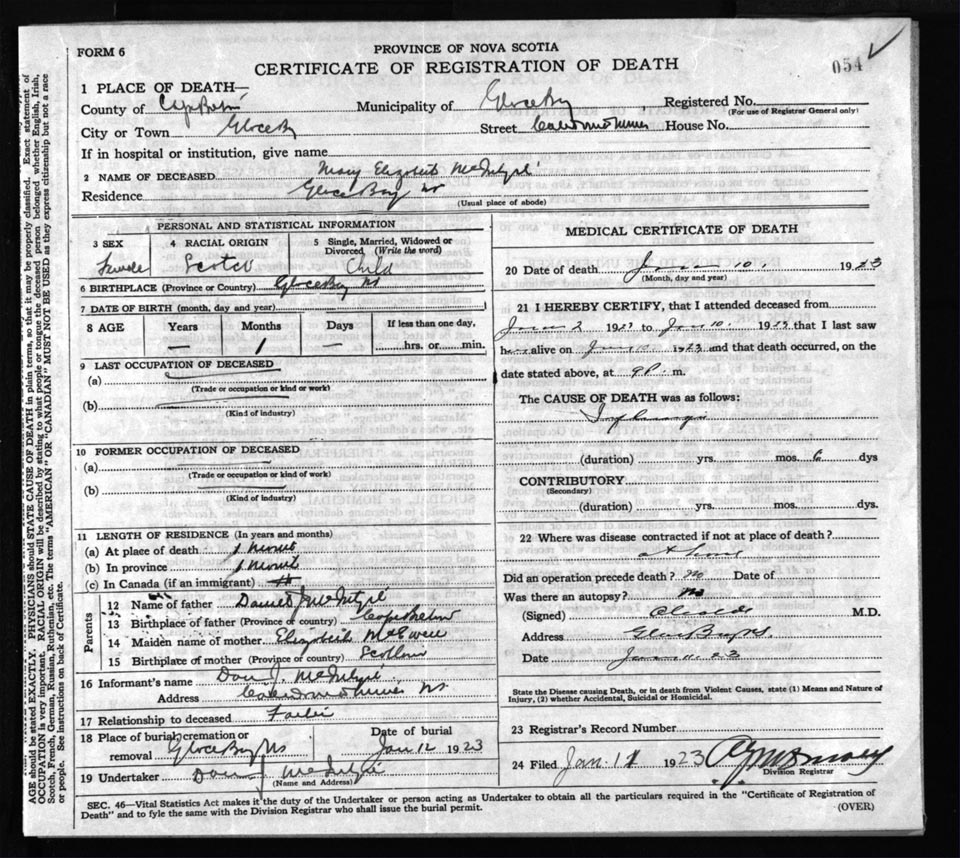 FORM 6
PROVINCE OF NOVA SCOTIA
CERTIFICATE OF REGISTRATION OF DEATH
054
1 PLACE OF DEATH—
County of Municipality of Glace Bay Registered No.
(For use of Registrar General only)
City or Town Glace B Street Caledonia Mines House No.
If in hospital or institution, give name
2 NAME OF DECEASED Mary Elizabeth McIntyre
Residence Glace Bay NS
(Usual place of abode)
PERSONAL AND STATISTICAL INFORMATION
3 SEX
Female
4 RACIAL ORIGIN
Scotch
5 Single, Married, Widowed or Divorced, (Write the word)
Child
6 BIRTHPLACE (Province or Country) Glace Bay NS
7 DATE OF BIRTH (month, day and year)
8 AGE Years Months Days If less than one day,
— 1 — hrs. or min.
9 LAST OCCUPATION OF DECEASED
(a)
(Trade or occupation or kind or work)
(b)
(Kind of industry)
10 FORMER OCCUPATION OF DECEASED
(a)
(Trade or occupation or kind of work)
(b)
(Kind of industry)
11 LENGTH OF RESIDENCE (In years and months)
(a) At place of death 1 Month
(b) In province 1 Month
(c) In Canada (if an immigrant)
Parents
12 Name of father Daniel J McIntyre
13 Birthplace of father (Province or country) Cape Breton
14 Maiden name of mother Elizabeth McEwen
15 Birthplace of mother (Province or country) Scotland
16 Informant's name Dan J. McIntyre
Address Caledonia Mines NS
17 Relationship to deceased Father
18 Place of burial, cremation or removal Glace Bay NS Date of burial Jan 12 1923
19 Undertaker Dan J McIntyre
(Name and Address)
MEDICAL CERTIFICATE OF DEATH
20 Date of death Jan 10, 1923
(Month, day and year)
21 I HEREBY CERTIFY, that I attended deceased from
Jan 2 1923 to Jan 10 1923 that I last saw
h alive on Jan 10 1923 and that death occurred, on the
date stated above, at 9 P. m.
The CAUSE OF DEATH was as follows:
(duration) yrs. mos. 6 dys
CONTRIBUTORY
(Secondary)
(duration) yrs. mos. dys.
22 Where was disease contracted if not at place of death?
at home
Did an operation precede death? No Date of
Was there an autopsy? No
(Signed) M.D.
Address Glace Bay NS
Date Jan 11. 23
State the Disease causing Death, or in death from Violent Causes, state (1) Means and Nature of Injury, (2) whether Accidental, Suicidal or Homicidal.
23 Registrar's Record Number
24 Filed Jan. 11 1923
Division Registrar
SEC. 46—Vital Statistics Act makes it the duty of the Undertaker or person acting as Undertaker to obtain all the particulars required in the "Certificate of Registration of
Death" and to fyle the same with the Division Registrar who shall issue the burial permit. (OVER)
AGE should be stated EXACTLY. PHYSICIANS should STATE CAUSE OF DEATH in plain terms, so that it may be properly classified. Exact statement of
OCCUPATION is very important. RACIAL ORIGIN will be described by stating to what people or tongue the deceased person belonged whether English, Irish,
Scotch, French, German, Russian, Ruthenian, etc. The terms "AMERICAN" OR "CANADIAN" MUST NOT BE USED as they express citizenship but not a race
or people. See instructions on back of Certificate.